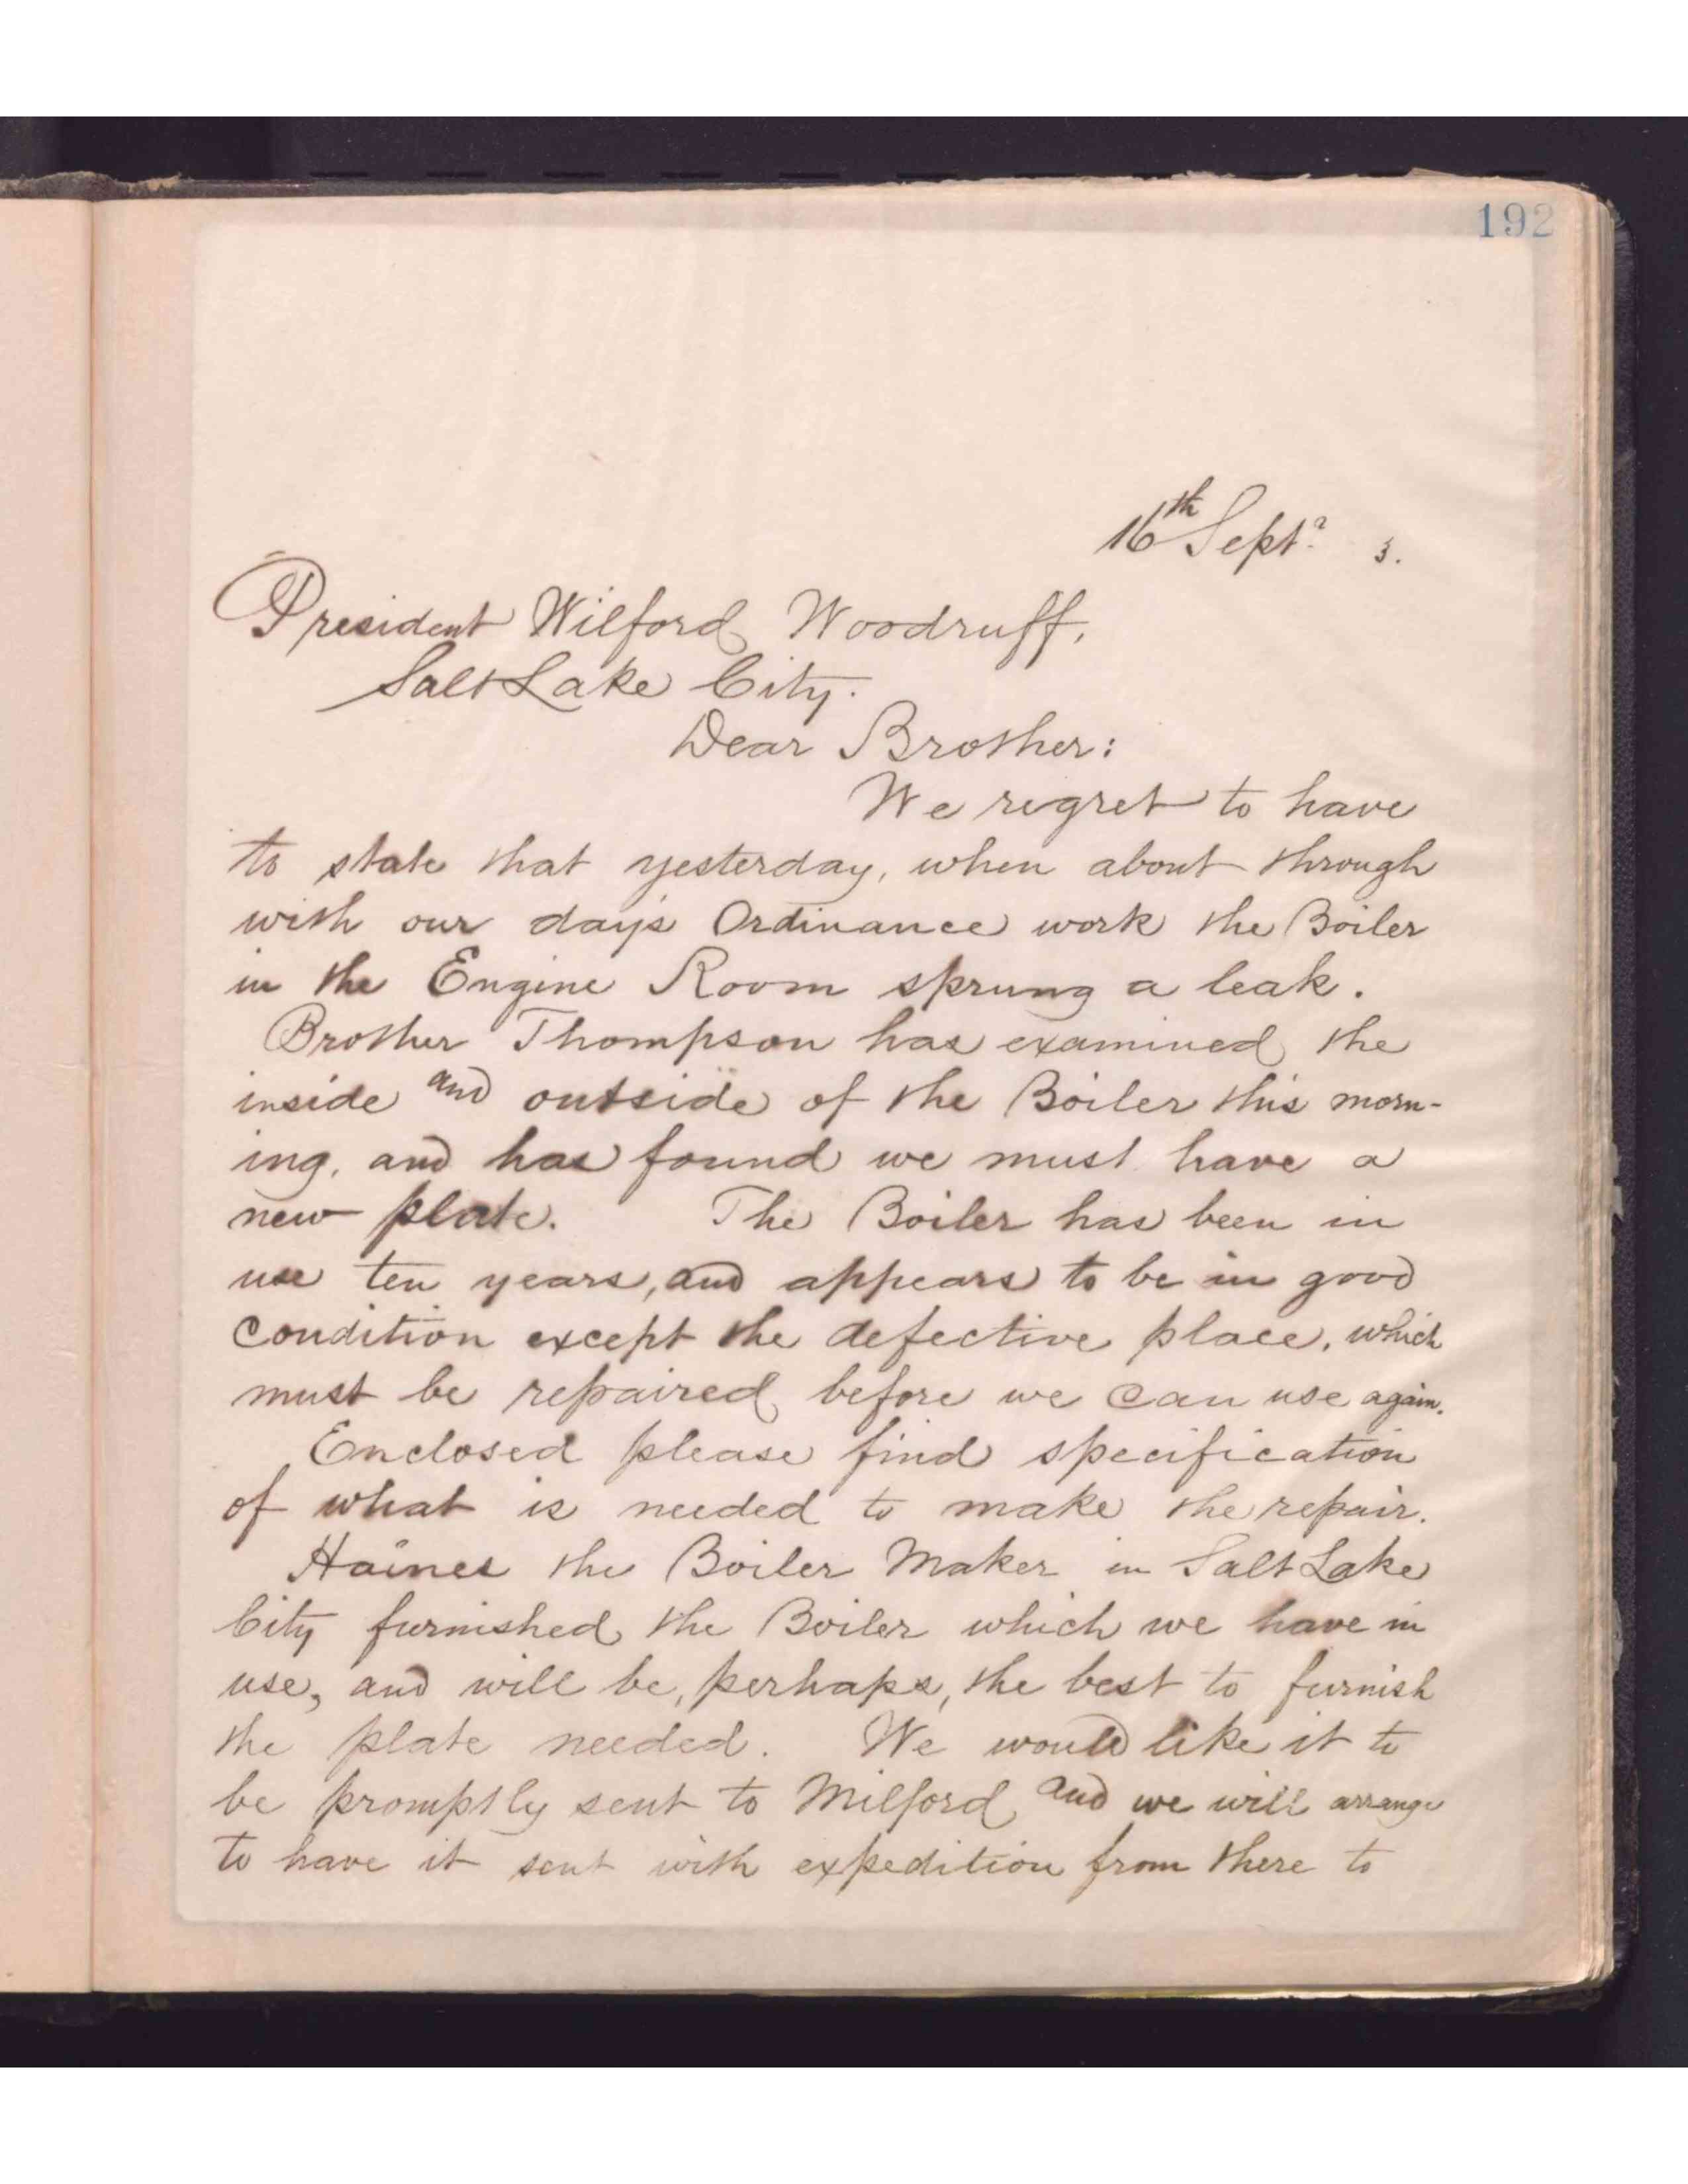 192
16th Sept. 3.
President Wilford Woodruff,
Salt Lake City.
Dear Brother:
We regret to have
to state that yesterday, when about through
with our day's Ordinance work the Boiler
in the Engine Room sprung a leak.
Brother Thompson has examined the
inside and outside of the Boiler this morn-
ing, and has found we must have a
new plate. The Boiler has been in
use ten years, and appears to be in good
condition except the defective place, which
must be repaired before we can use again.
Enclosed please find specification
of what is needed to make the repair.
Haines the Boiler Maker in Salt Lake
City furnished the Boiler which we have in
use, and will be, perhaps, the best to furnish
the plate needed. We would like it to
be promptly sent to Milford and we will arrange
to have it sent with expedition from there to